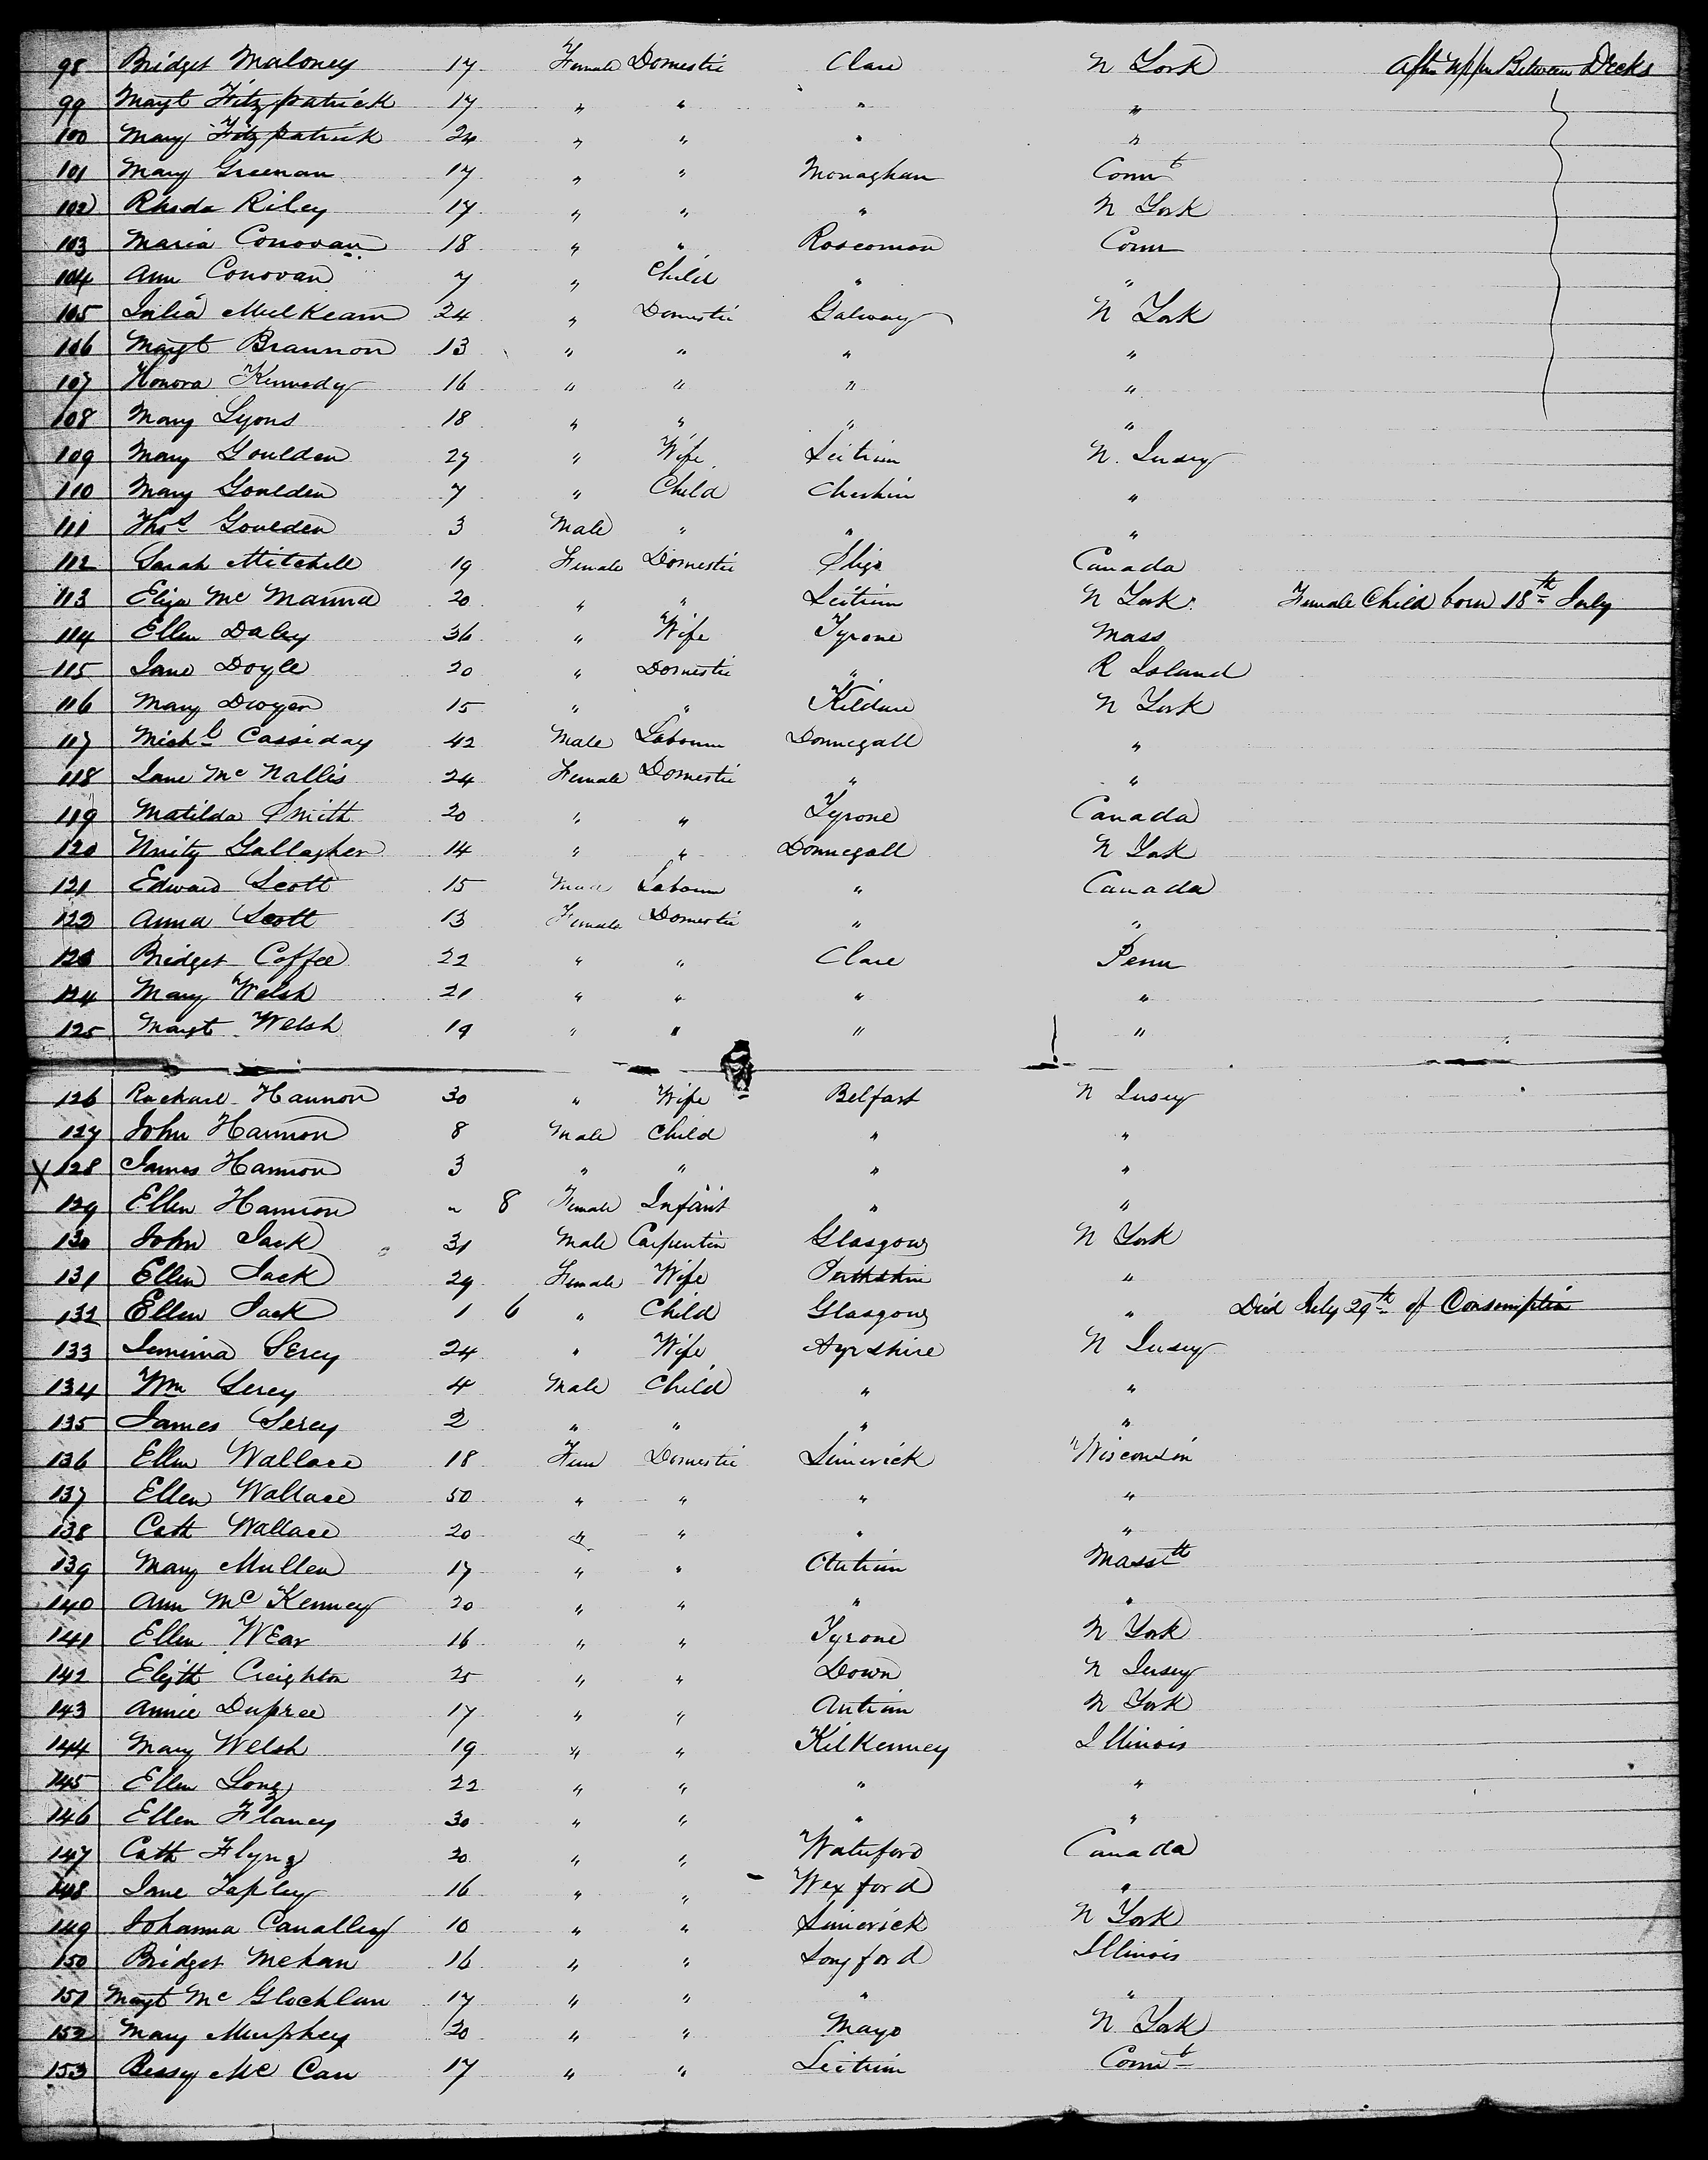 98 Bridget Maloney 17 Female Domestic Clare N York After Upper Between Decks
99 Margt Fitzpatrick 17 " " " "
100 Mary Fitzpatrick 24 " " " "
101 Mary Greenan 17 " " Monaghan Connt
102 Rhoda Riley 17 " " " N York
103 Maria Conovan 18 " " Roscomon Conn
104 Ann Conovan 7 " Child " "
105 Julia MulKearn 24 " Domestic Galway N York
106 Margt Brannon 13 " " " "
107 Honora Kennedy 16 " " " "
108 Mary Lyons 18 " " " "
109 Mary Goulden 27 " Wife Leitrim N. Jersey
110 Mary Goulden 7 " Child Cheshire "
111 Thos Goulden 3 Male " " "
112 Sarah Mitchell 19 Female Domestic Sligo Canada
113 Eliza Mc Manna 20 " " Leitrim N York Female Child born 18th July
114 Ellen Daley 36 " Wife Tyrone Mass
115 Jane Doyle 20 " Domestic " R Island
116 Mary Dwyer 15 " " Kildare N York
117 Michl Cassiday 42 Male Labourer Donnegall "
118 Jane Mc Nallis 24 Female Domestic " "
119 Matilda Smith 20 " " Tyrone Canada
120 Unity Gallagher 14 " " Donnegall N York
121 Edward Scott 15 Male Labourer " Canada
122 Anna Scott 13 Female Domestic " "
123 Bridget Coffee 22 " " Clare Penn
124 Mary Welsh 21 " " " "
125 Margt Welsh 19 " " " "
126 Rachael Hannon 30 " Wife Belfast N Jersey
127 John Hannon 8 Male Child " "
X 128 James Hannon 3 " " " "
129 Ellen Hannon " 8 Female Infant " "
130 John Jack 31 Male Carpenter Glasgow N York
131 Ellen Jack 29 Female Wife Perthshire "
132 Ellen Jack 1 6 " Child Glasgow " Died July 29th of Consumption
133 Jemima Serey 24 " Wife Ayrshire N Jersey
134 Wm Serey 4 Male Child " "
135 James Serey 2 " " " "
136 Ellen Wallace 18 Fem Domestic Limerick Wisconsin
137 Ellen Wallace 50 " " " "
138 Cath Wallace 20 " " " "
139 Mary Mullen 17 " " Antrim Massth
140 Ann Mc Kenney 20 " " " "
141 Ellen WEar 16 " " Tyrone N York
142 Elizth Creighton 25 " " Down N Jersey
143 Annie Dupree 17 " " Antrim N York
144 Mary Welsh 19 " " KilKenney Illinois
145 Ellen Long 22 " " " "
146 Ellen Flaney 30 " " " "
147 Cath Flyng 20 " " Waterford Canada
148 Jane Tapley 16 " " Wexford "
149 Johanna Canalley 10 " " Limerick N York
150 Bridget Mehan 16 " " Longford Illinois
151 Margt Mc Glochlan 17 " " " "
152 Mary Murphey 20 " " Mayo N York
153 Bessy Mc Can 17 " " Leitrim Connt